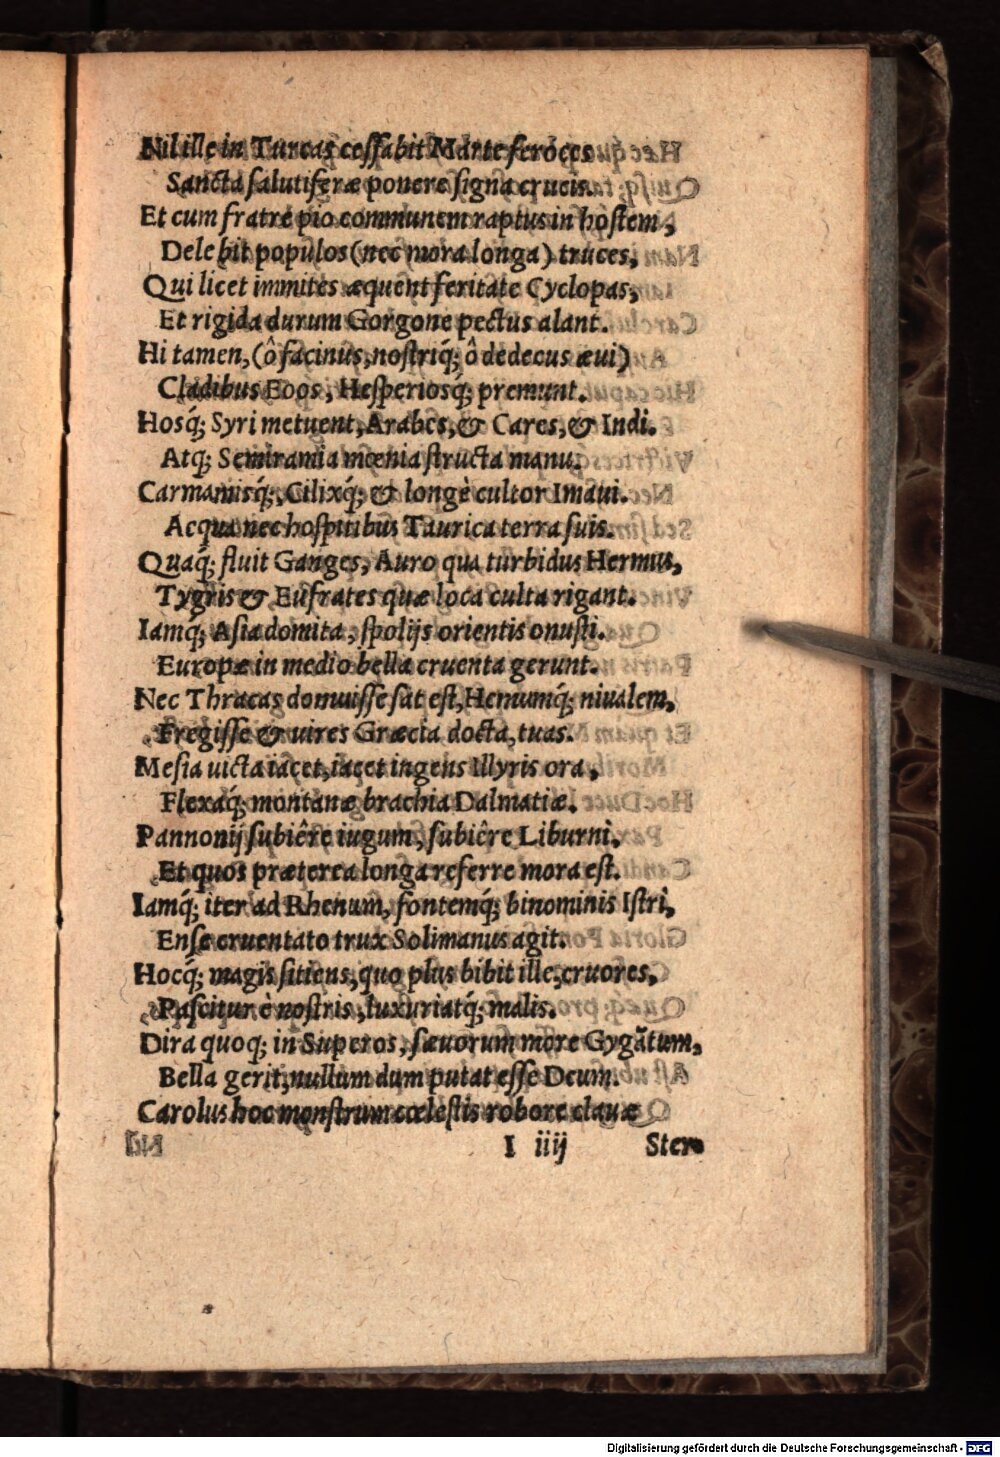 Nil ille in Turcas cessabit Marte feroces
Sancta salutiferæ ponere signa crucis.
Et cum fratre pio communem raptus in hostem,
Delebit populos (nec mora longa) truces,
Qui licet immites æquent feritate Cyclopas,
Et rigida durum Gorgone pectus alant.
Hi tamen, (ô facinus, nostriq́; ô dedecus æui)
Cladibus Eoos, Hesperiosq́; premunt.
Hosq́; Syri metuent, Arabes, & Cares, & Indi.
Atq; Semiramia mœnia structa manu.
Carmanisq́;, Cilixq́; & longè cultor Imaui.
Ac qua nec hospitibus Taurica terra suis.
Quaq́; fluit Ganges, Auro qua turbidus Hermus,
Tygris & Eufrates quæ loca culta rigant.
Iamq́; Asia domita, spolijs orientis onusti.
Europæ in medio bella cruenta gerunt.
Nec Thracas domuisse sat est, Hemumq́; niualem,
Fregisse & uires Græcia docta, tuas.
Mesia uicta iacet, iacet ingens Illyris ora,
Flexaq́; montanæ brachia Dalmatiæ.
Pannonij subiêre iugum, subiêre Liburni,
Et quos præterea longa referre mora est.
Iamq́; iter ad Rhenum, fontemq́; binominis Istri,
Ense cruentato trux Solimanus agit.
Hocq́; magis sitiens, quo plus bibit ille, cruores,
Pascitur è nostris, luxuriatq́; malis.
Dira quoq; in Superos, sæuorum more Gygătum,
Bella gerit, nullum dum putat esse Deum.
Carolus hoc monstrum cœlestis robore clauæ
I iiij Ster
Digitalisierung gefördert durch die Deutsche Forschungsgemeinschaft - DFG